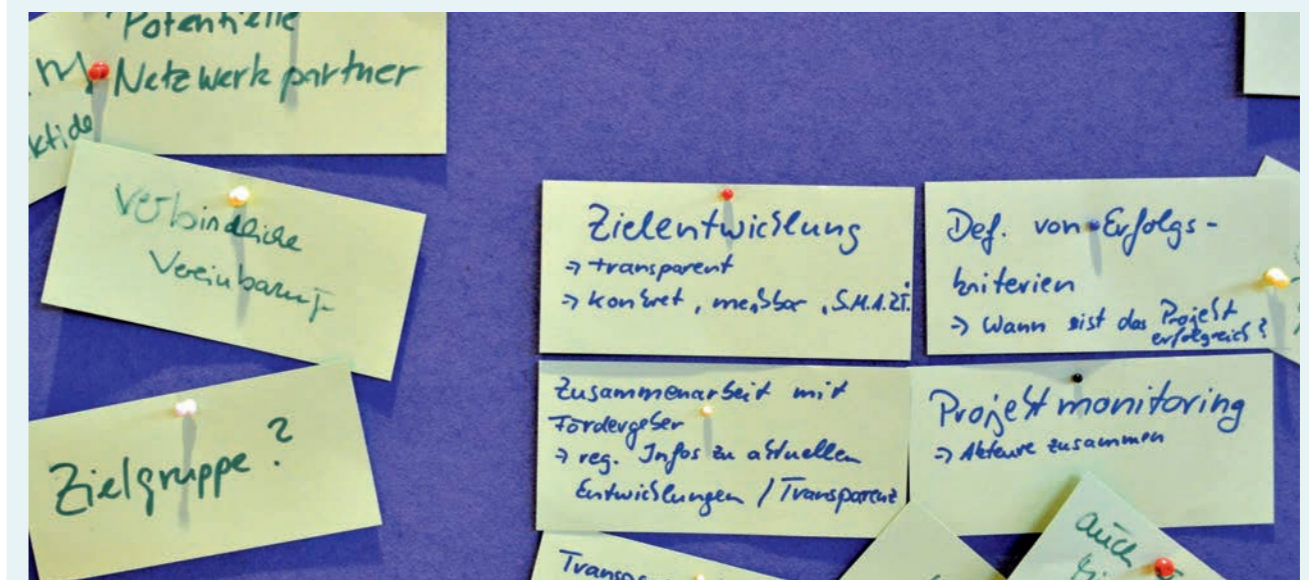 Potentielle
Netzwerkpartner
Verbindliche
Vereinbarung
Zielgruppe?
Zielentwicklung
→ transparent
→ konkret, messbar, S.M.A.R.T.
Def. von Erfolgs-
kriterien
→ Wann ist das Projekt
erfolgreich?
Zusammenarbeit mit
Fördergeber
→ reg. Infos zu aktuellen
Entwicklungen / Transparenz
Projektmonitoring
→ Akteure zusammen
auch